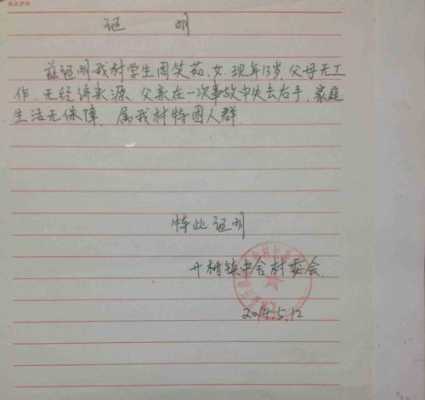 证 明
兹证明我村学生周笑茹、女、现年13岁,父母无工
作、无经济来源、父亲在一次事故中失去右手、家庭
生活无保障、属我村特困人群
特此证明
村委会
2014.5.12